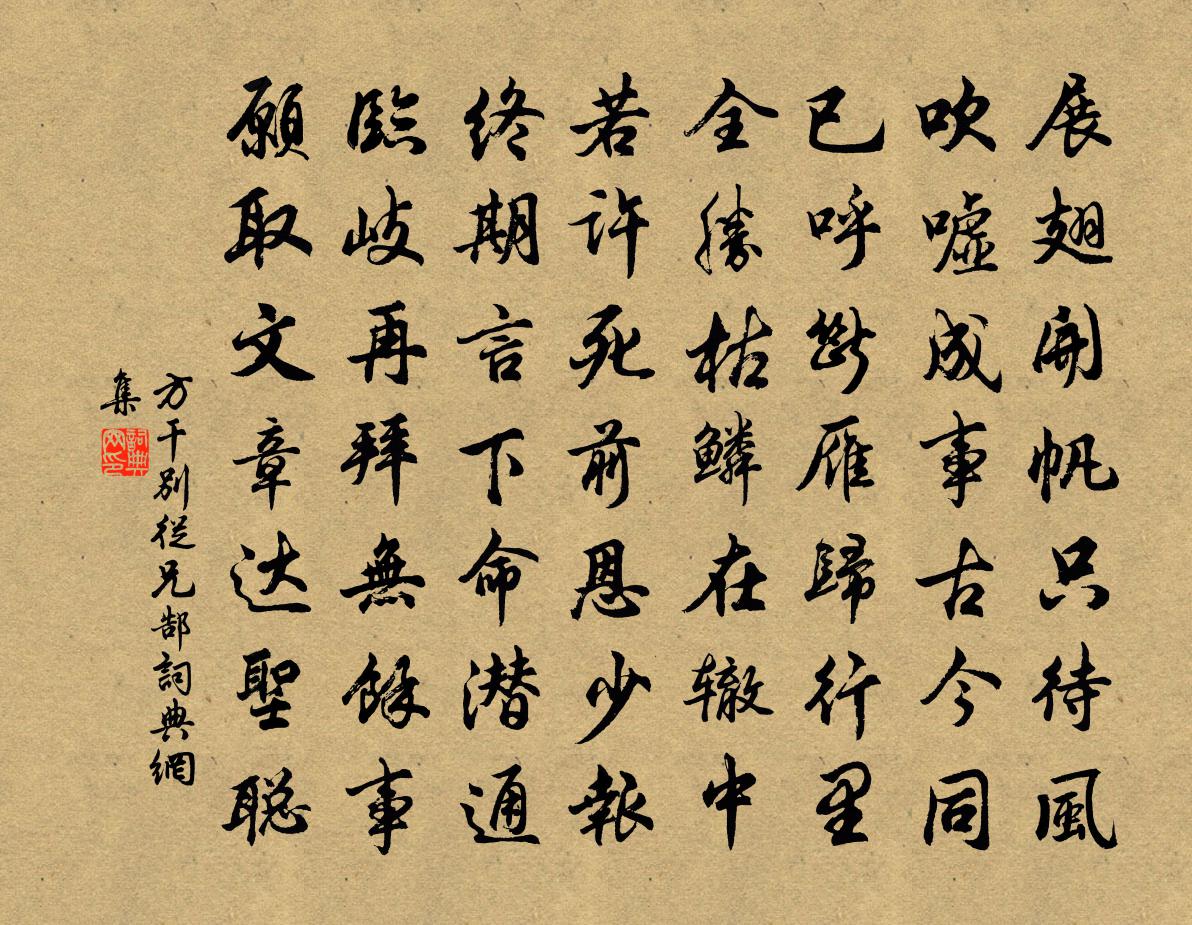 展翅開帆只待風
吹噓成事古今同
已呼斷雁歸行里
全勝枯鱗在辙中
若許死前恩少報
終期言下命潜通
臨歧再拜無餘事
願取文章达聖聪
方干別從兄郜詞典網
集
詞典
网印